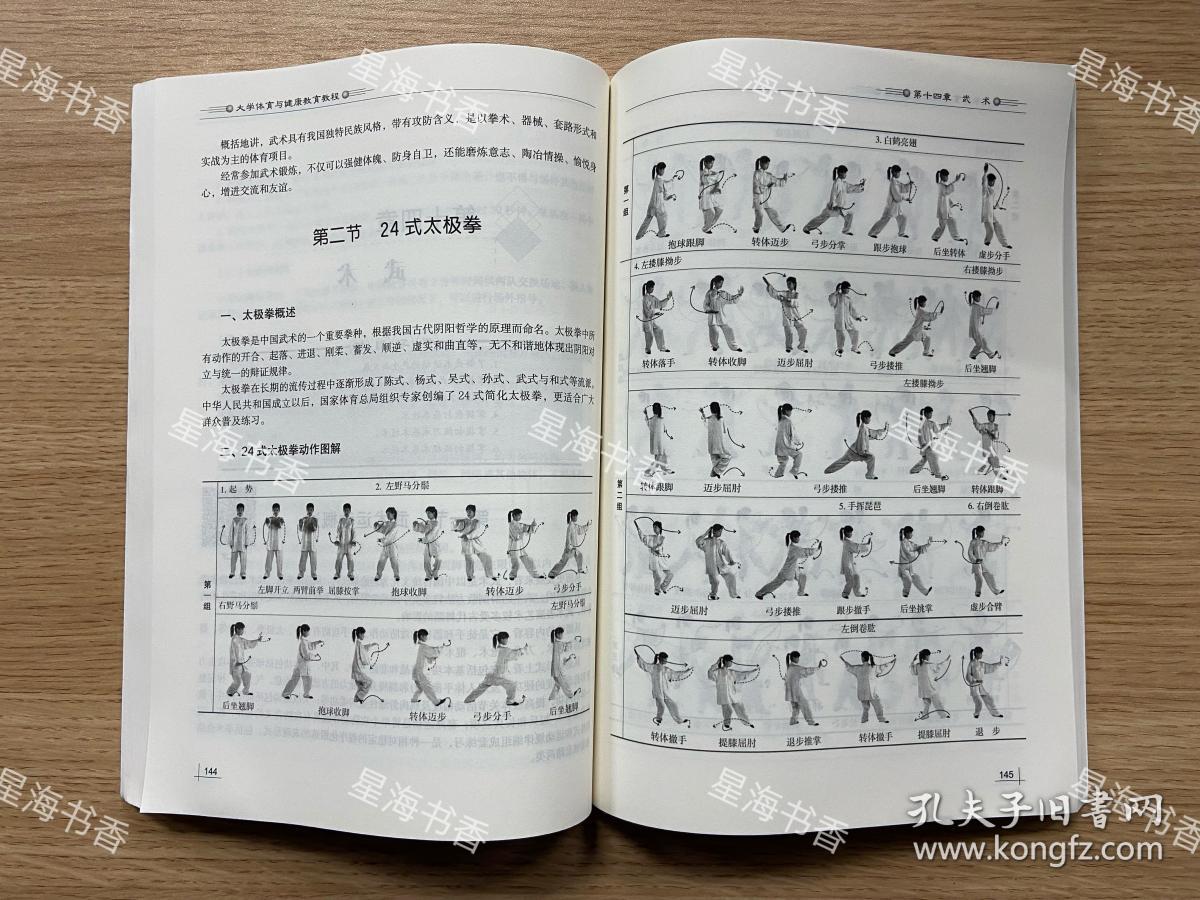 大学体育与健康教育教程
概括地讲，武术具有我国独特民族风格，带有攻防含义，是以拳术、器械、套路形式和
实战为主的体育项目。
经常参加武术锻炼，不仅可以强健体魄、防身自卫，还能磨炼意志、陶冶情操、愉悦身
心，增进交流和友谊。
第二节 24 式太极拳
一、太极拳概述
太极拳是中国武术的一个重要拳种，根据我国古代阴阳哲学的原理而命名。太极拳中所
有动作的开合、起落、进退、刚柔、蓄发、顺逆、虚实和曲直等，无不和谐地体现出阴阳对
立与统一的辩证规律。
太极拳在长期的流传过程中逐渐形成了陈式、杨式、吴式、孙式、武式与和式等流派，
中华人民共和国成立以后，国家体育总局组织专家创编了 24 式简化太极拳，更适合广大
群众普及练习。
二、24 式太极拳动作图解
1. 起 势 2. 左野马分鬃
第一组
左脚开立 两臂前举 屈膝按掌 抱球收脚 转体迈步 弓步分手
右野马分鬃 左野马分鬃
后坐翘脚 抱球收脚 转体迈步 弓步分手 后坐翘脚
144
第十四章 武 术
3. 白鹤亮翅
第一组
抱球跟脚 转体迈步 弓步分掌 跟步抱球 后坐转体 虚步分手
4. 左搂膝拗步 右搂膝拗步
转体落手 转体收脚 迈步屈肘 弓步搂推 后坐翘脚
左搂膝拗步
第二组
转体跟脚 迈步屈肘 弓步搂推 后坐翘脚 转体跟脚
5. 手挥琵琶 6. 右倒卷肱
迈步屈肘 弓步搂推 跟步撤手 后坐挑掌 虚步合臂
左倒卷肱
转体撤手 提膝屈肘 退步推掌 转体撤手 提膝屈肘 退 步
145
星海书香
星海书香
星海书香
星海书香
星海书香
星海书香
星海书香
星海书香
星海书香
孔夫子旧书网
www.kongfz.com